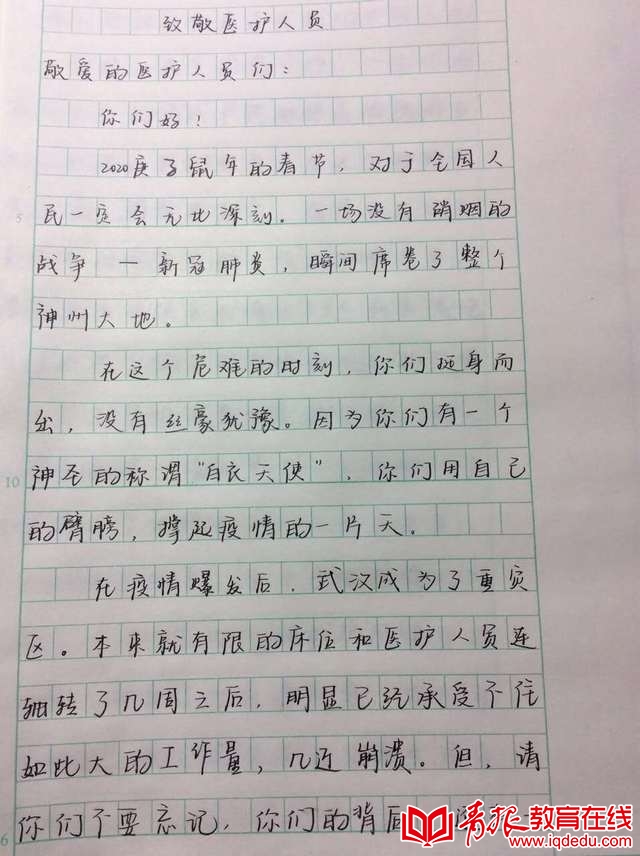 致敬医护人员
敬爱的医护人员们：
你们好！
2020庚子鼠年的春节，对于全国人
民一定会无比深刻。一场没有硝烟的
战争—新冠肺炎，瞬间席卷了整个
神州大地。
在这个危难的时刻，你们挺身而
5
出，没有丝豪犹豫。因为你们有一个
神圣的称谓“白衣天使”，你们用自己
10
的臂膀，撑起疫情的一片天。
在疫情爆发后，武汉成为了重灾
区。本来就有限的床位和医护人员连
轴转了几周之后，明显已经承受不住
如此大的工作量，几近崩溃。但，请
你们不要忘记，你们的背后
青报教育在线
www.iqdedu.com